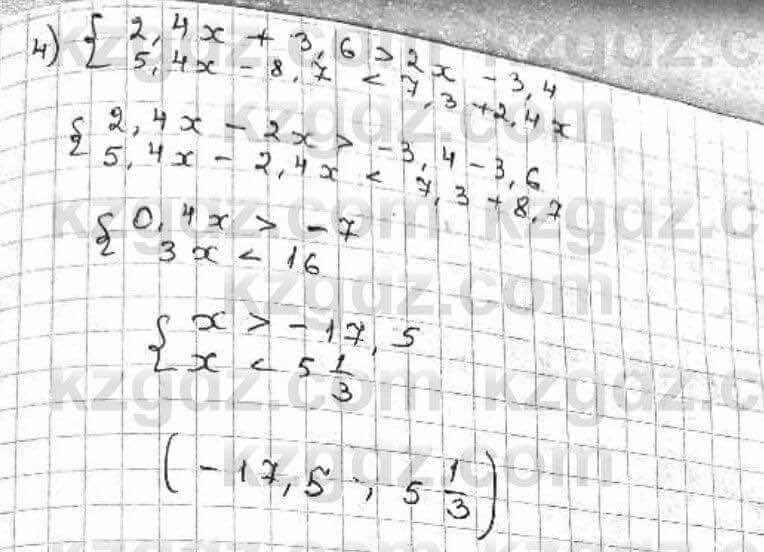 4) { 2,4x + 3,6 > 2x - 3,4
5,4x - 8,7 < 7,3 + 2,4x
{ 2,4x - 2x > -3,4 - 3,6
5,4x - 2,4x < 7,3 + 8,7
{ 0,4x > -7
3x < 16
{ x > -17,5
x < 5 1/3
(-17,5 ; 5 1/3)
kzgdz.com kzgdz.c
kzgdz.com
kzgdz.com kzgdz.c
kzgdz.com
kzgdz.com kzgdz.c
kzgdz.com